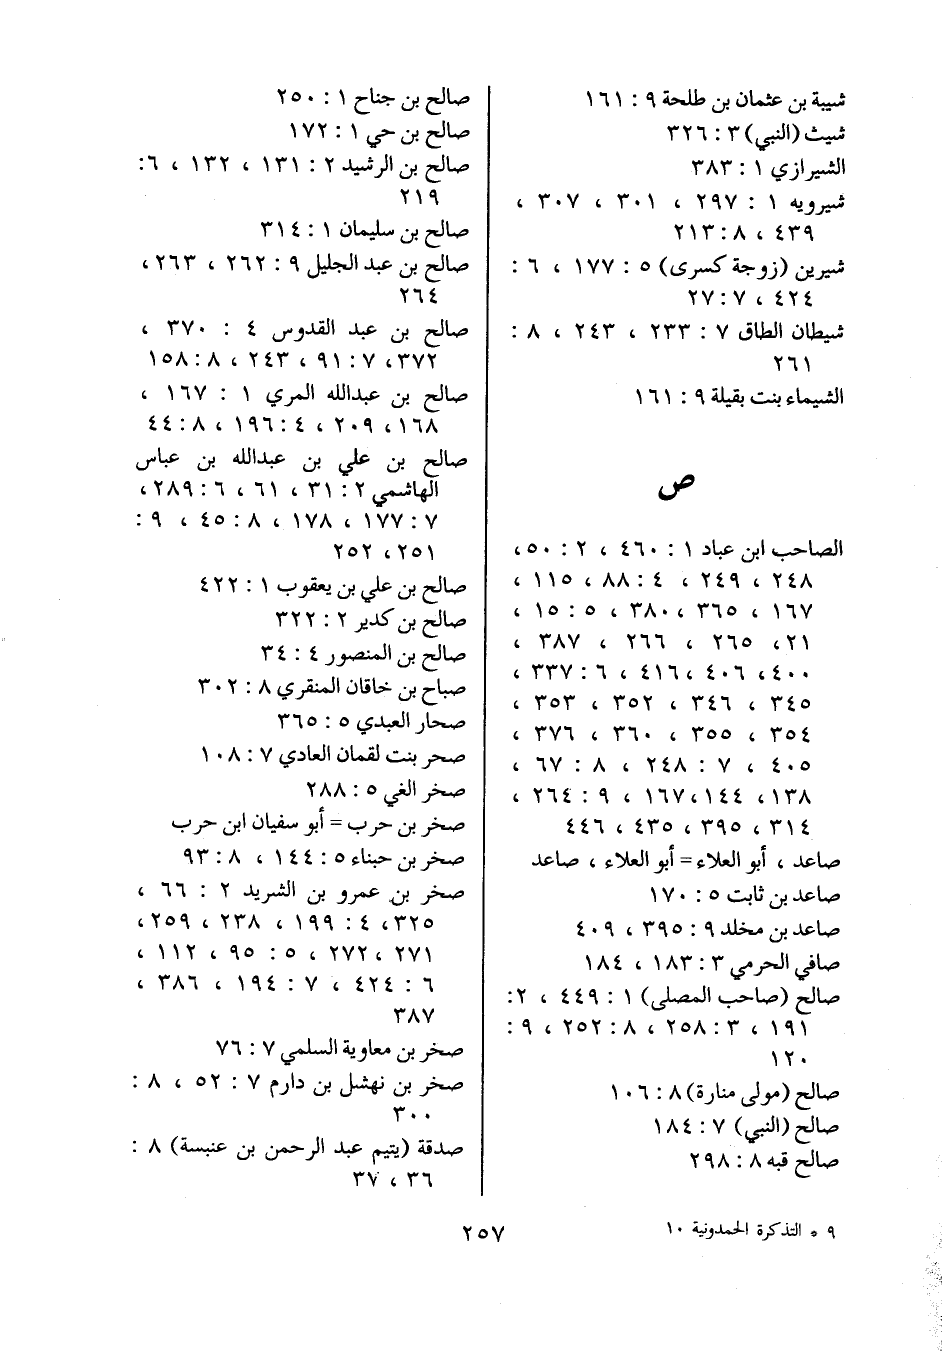 شيبة بن عثمان بن طلحة ٩ : ١٦١
شيث (النبي) ٣ : ٣٢٦
الشيرازي ١ : ٣٨٣
شيرويه ١ : ٢٩٧ ، ٣٠١ ، ٣٠٧ ،
٤٣٩ ، ٨ : ٢١٣
شيرين (زوجة كسرى) ٥ : ١٧٧ ، ٦ :
٤٢٤ ، ٧ : ٢٧
شيطان الطاق ٧ : ٢٣٣ ، ٢٤٣ ، ٨ :
٢٦١
الشيماء بنت بقيلة ٩ : ١٦١
ص
الصاحب ابن عباد ١ : ٤٦٠ ، ٢ : ٥٠ ،
٢٤٨ ، ٢٤٩ ، ٤ : ٨٨ ، ١١٥ ،
١٦٧ ، ٣٦٥ ، ٣٨٠ ، ٥ : ١٥ ،
٢١ ، ٢٦٥ ، ٢٦٦ ، ٣٨٧ ،
٤٠٠ ، ٤٠٦ ، ٤١٦ ، ٦ : ٣٣٧ ،
٣٤٥ ، ٣٤٦ ، ٣٥٢ ، ٣٥٣ ،
٣٥٤ ، ٣٥٥ ، ٣٦٠ ، ٣٧٦ ،
٤٠٥ ، ٧ : ٢٤٨ ، ٨ : ٦٧ ،
١٣٨ ، ١٤٤ ، ١٦٧ ، ٩ : ٢٦٤ ،
٣١٤ ، ٣٩٥ ، ٤٣٥ ، ٤٤٦
صاعد ، أبو العلاء = أبو العلاء ، صاعد
صاعد بن ثابت ٥ : ١٧٠
صاعد بن مخلد ٩ : ٣٩٥ ، ٤٠٩
صافي الحرمي ٣ : ١٨٣ ، ١٨٤
صالح (صاحب المصلى) ١ : ٤٤٩ ، ٢ :
١٩١ ، ٣ : ٢٥٨ ، ٨ : ٢٥٢ ، ٩ :
١٢٠
صالح (مولى منارة) ٨ : ١٠٦
صالح (النبي) ٧ : ١٨٤
صالح قبه ٨ : ٢٩٨
صالح بن جناح ١ : ٢٥٠
صالح بن حي ١ : ١٧٢
صالح بن الرشيد ٢ : ١٣١ ، ١٣٢ ، ٦ :
٢١٩
صالح بن سليمان ١ : ٣١٤
صالح بن عبد الجليل ٩ : ٢٦٢ ، ٢٦٣ ،
٢٦٤
صالح بن عبد القدوس ٤ : ٣٧٠ ،
٣٧٢ ، ٧ : ٩١ ، ٢٤٣ ، ٨ : ١٥٨
صالح بن عبدالله المري ١ : ١٦٧ ،
١٦٨ ، ٢٠٩ ، ٤ : ١٩٦ ، ٨ : ٤٤
صالح بن علي بن عبدالله بن عباس
الهاشمي ٢ : ٣١ ، ٦١ ، ٦ : ٢٨٩ ،
٧ : ١٧٧ ، ١٧٨ ، ٨ : ٤٥ ، ٩ :
٢٥١ ، ٢٥٢
صالح بن علي بن يعقوب ١ : ٤٢٢
صالح بن كدير ٢ : ٣٢٢
صالح بن المنصور ٤ : ٣٤
صباح بن خاقان المنقري ٨ : ٣٠٢
صحار العبدي ٥ : ٣٦٥
صحر بنت لقمان العادي ٧ : ١٠٨
صخر الغي ٥ : ٢٨٨
صخر بن حرب = أبو سفيان ابن حرب
صخر بن حبناء ٥ : ١٤٤ ، ٨ : ٩٣
صخر بن عمرو بن الشريد ٢ : ٦٦ ،
٣٢٥ ، ٤ : ١٩٩ ، ٢٣٨ ، ٢٥٩ ،
٢٧١ ، ٢٧٢ ، ٥ : ٩٥ ، ١١٢ ،
٦ : ٤٢٤ ، ٧ : ١٩٤ ، ٣٨٦ ،
٣٨٧
صخر بن معاوية السلمي ٧ : ٧٦
صخر بن نهشل بن دارم ٧ : ٥٢ ، ٨ :
٣٠٠
صدقة (يتيم عبد الرحمن بن عنبسة) ٨ :
٣٦ ، ٣٧
٩ * التذكرة الحمدونية ١٠
٢٥٧